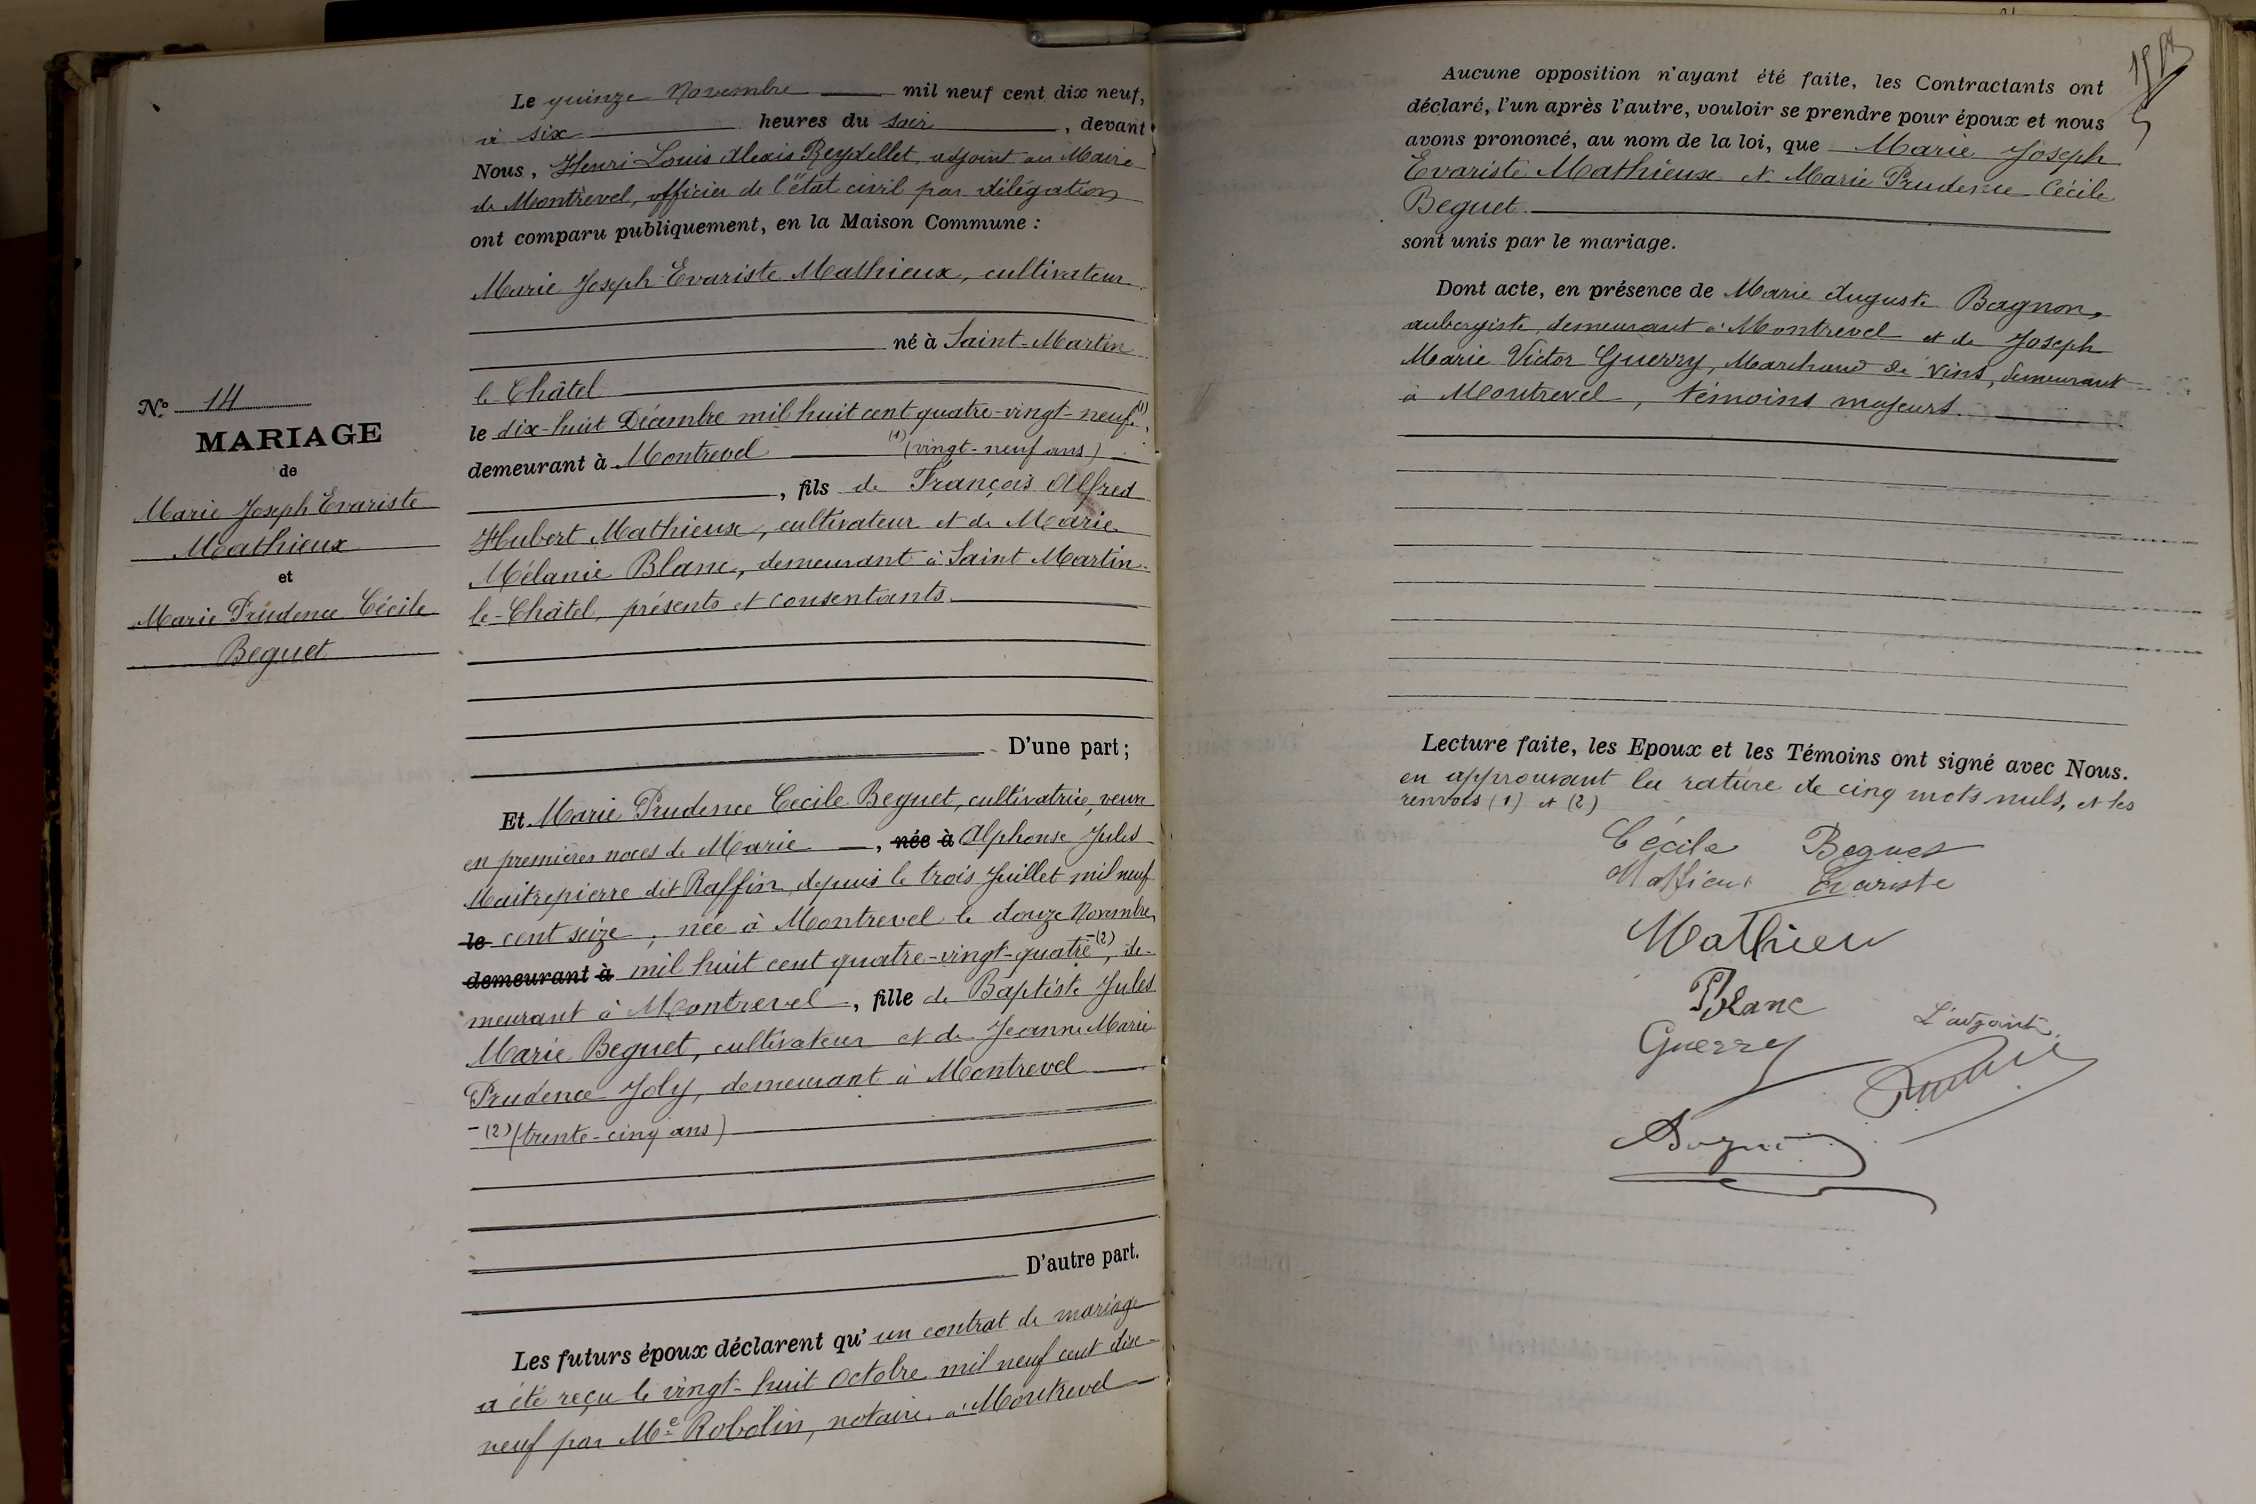 N° 14
MARIAGE
de
Marie Joseph Evariste
Mathieux
et
Marie Prudence Cécile
Beguet
Le quinze Novembre mil neuf cent dix neuf,
à six heures du soir, devant
Nous, Henri Louis Alexis Reydellet, adjoint au Maire
de Montrevel, officier de l'état civil par délégation
ont comparu publiquement, en la Maison Commune :
Marie Joseph Evariste Mathieux, cultivateur
né à Saint-Martin
le Châtel
le dix-huit Décembre mil huit cent quatre-vingt-neuf (1),
demeurant à Montrevel (1) (vingt-neuf ans)
, fils de François Alfred
Hubert Mathieux, cultivateur et de Marie
Mélanie Blanc, demeurant à Saint Martin
le-Châtel, présents et consentants
D'une part ;
Et Marie Prudence Cécile Beguet, cultivatrice, veuve
en premières noces de Marie, née à Alphonse Jules
Maitrepierre dit Raffin, depuis le trois Juillet mil neuf
le cent seize, née à Montrevel le douze Novembre
demeurant à mil huit cent quatre-vingt-quatre (2), de-
meurant à Montrevel, fille de Baptiste Jules
Marie Beguet, cultivateur et de Jeanne Marie
Prudence Joly, demeurant à Montrevel
(2) (trente-cinq ans)
D'autre part.
Les futurs époux déclarent qu'un contrat de mariage
a été reçu le vingt-huit Octobre mil neuf cent dix-
neuf par Me Robolin, notaire à Montrevel
Aucune opposition n'ayant été faite, les Contractants ont
déclaré, l'un après l'autre, vouloir se prendre pour époux et nous
avons prononcé, au nom de la loi, que Marie Joseph
Evariste Mathieux et Marie Prudence Cécile
Beguet
sont unis par le mariage.
Dont acte, en présence de Marie Auguste Bagnon,
aubergiste, demeurant à Montrevel et de Joseph
Marie Victor Guerry, Marchand de vins, demeurant
à Montrevel, témoins majeurs
Lecture faite, les Epoux et les Témoins ont signé avec Nous.
en approuvant la rature de cinq mots nuls, et les
renvois (1) et (2)
Cécile Beguet
Evariste
Mathieu
Blanc
Guerry
L'adjoint